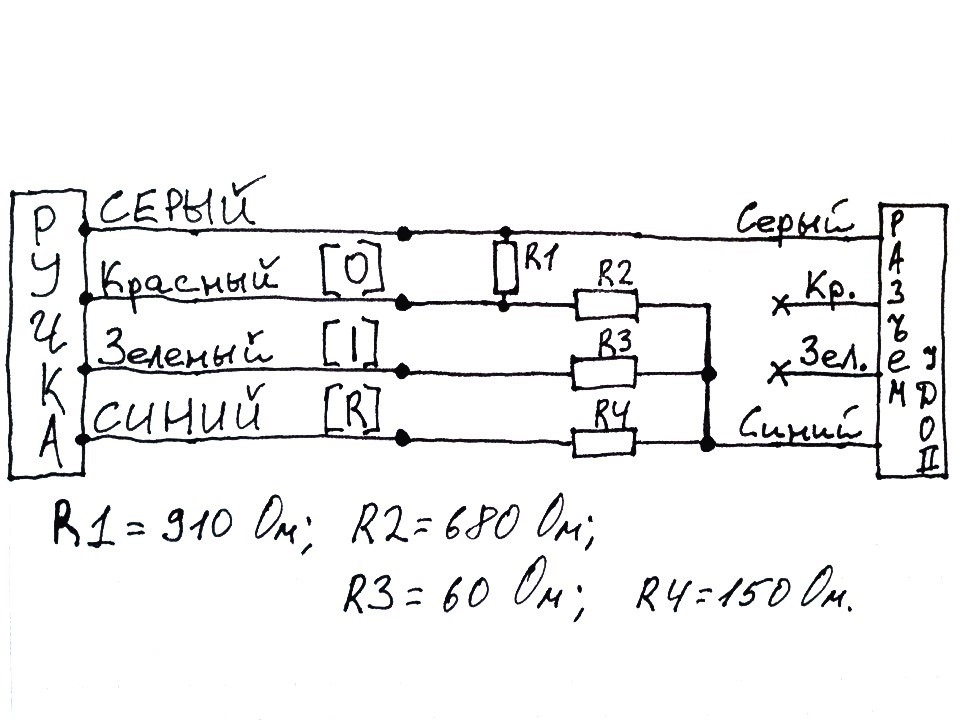 РУЧКА
СЕРЫЙ
Красный [0]
Зеленый [1]
СИНИЙ [R]
R1
R2
R3
R4
Серый
Кр.
Зел.
Синий
РАЗЪЕМ
R1 = 910 Ом; R2 = 680 Ом;
R3 = 60 Ом; R4 = 150 Ом.